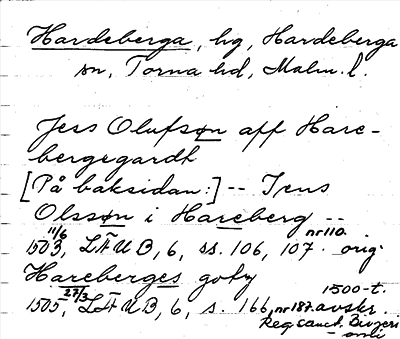 Hardeberga, hg, Hardeberga
sn, Torna hd, Malm. l.
Jess Olufsøn aff Hare-
bergegardt
[På baksidan:] -- Jens
Olssøn i Hareberg --
11/6 1503, LÆUB, 6, ss. 106, 107. nr 110. orig.
Hareberges goty
27/3 1505, LÆUB, 6, s. 166, nr 187. avskr. 1500-t.
Reg sanct.